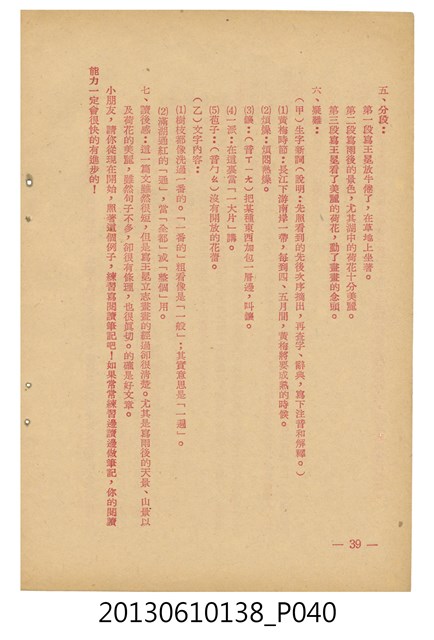 五、分段：
第一段寫王冕放牛倦了，在草地上坐著。
第二段寫雨後的景色，尤其湖中的荷花十分美麗。
第三段寫王冕看了美麗的荷花，動了畫畫的念頭。
六、疑難：
（甲）生字新詞（說明：先照看到的先後次序摘出，再查字、辭典，寫下注音和解釋。）
⑴黃梅時節：長江下游兩岸一帶，每到四、五月間，黃梅將要成熟的時候。
⑵煩燥：煩悶燥熱。
⑶鑲：（音ㄒㄧㄤ）把某種東西加包一層邊，叫鑲。
⑷一派：在這裏當「一大片」講。
⑸苞子：（音ㄅㄠ）沒有開放的花蕾。
（乙）文字內容：
⑴樹枝都像洗過一番的。「一番的」粗看像是「一般」：其實意思是「一遍」。
⑵滿湖通紅的「通」，當「全部」或「整個」用。
七、讀後感：這一篇文雖然很短，但是寫王冕立志畫畫的經過卻很清楚。尤其是寫雨後的天景、山景以
及荷花的美麗，雖然句子不多，卻很有條理，也很真切。的確是好文章。
小朋友，請你從現在開始，照著這個例子，練習寫閱讀筆記吧！如果常常練習邊讀邊做筆記，你的閱讀
能力一定會很快的有進步的！
— 39 —
20130610138_P040